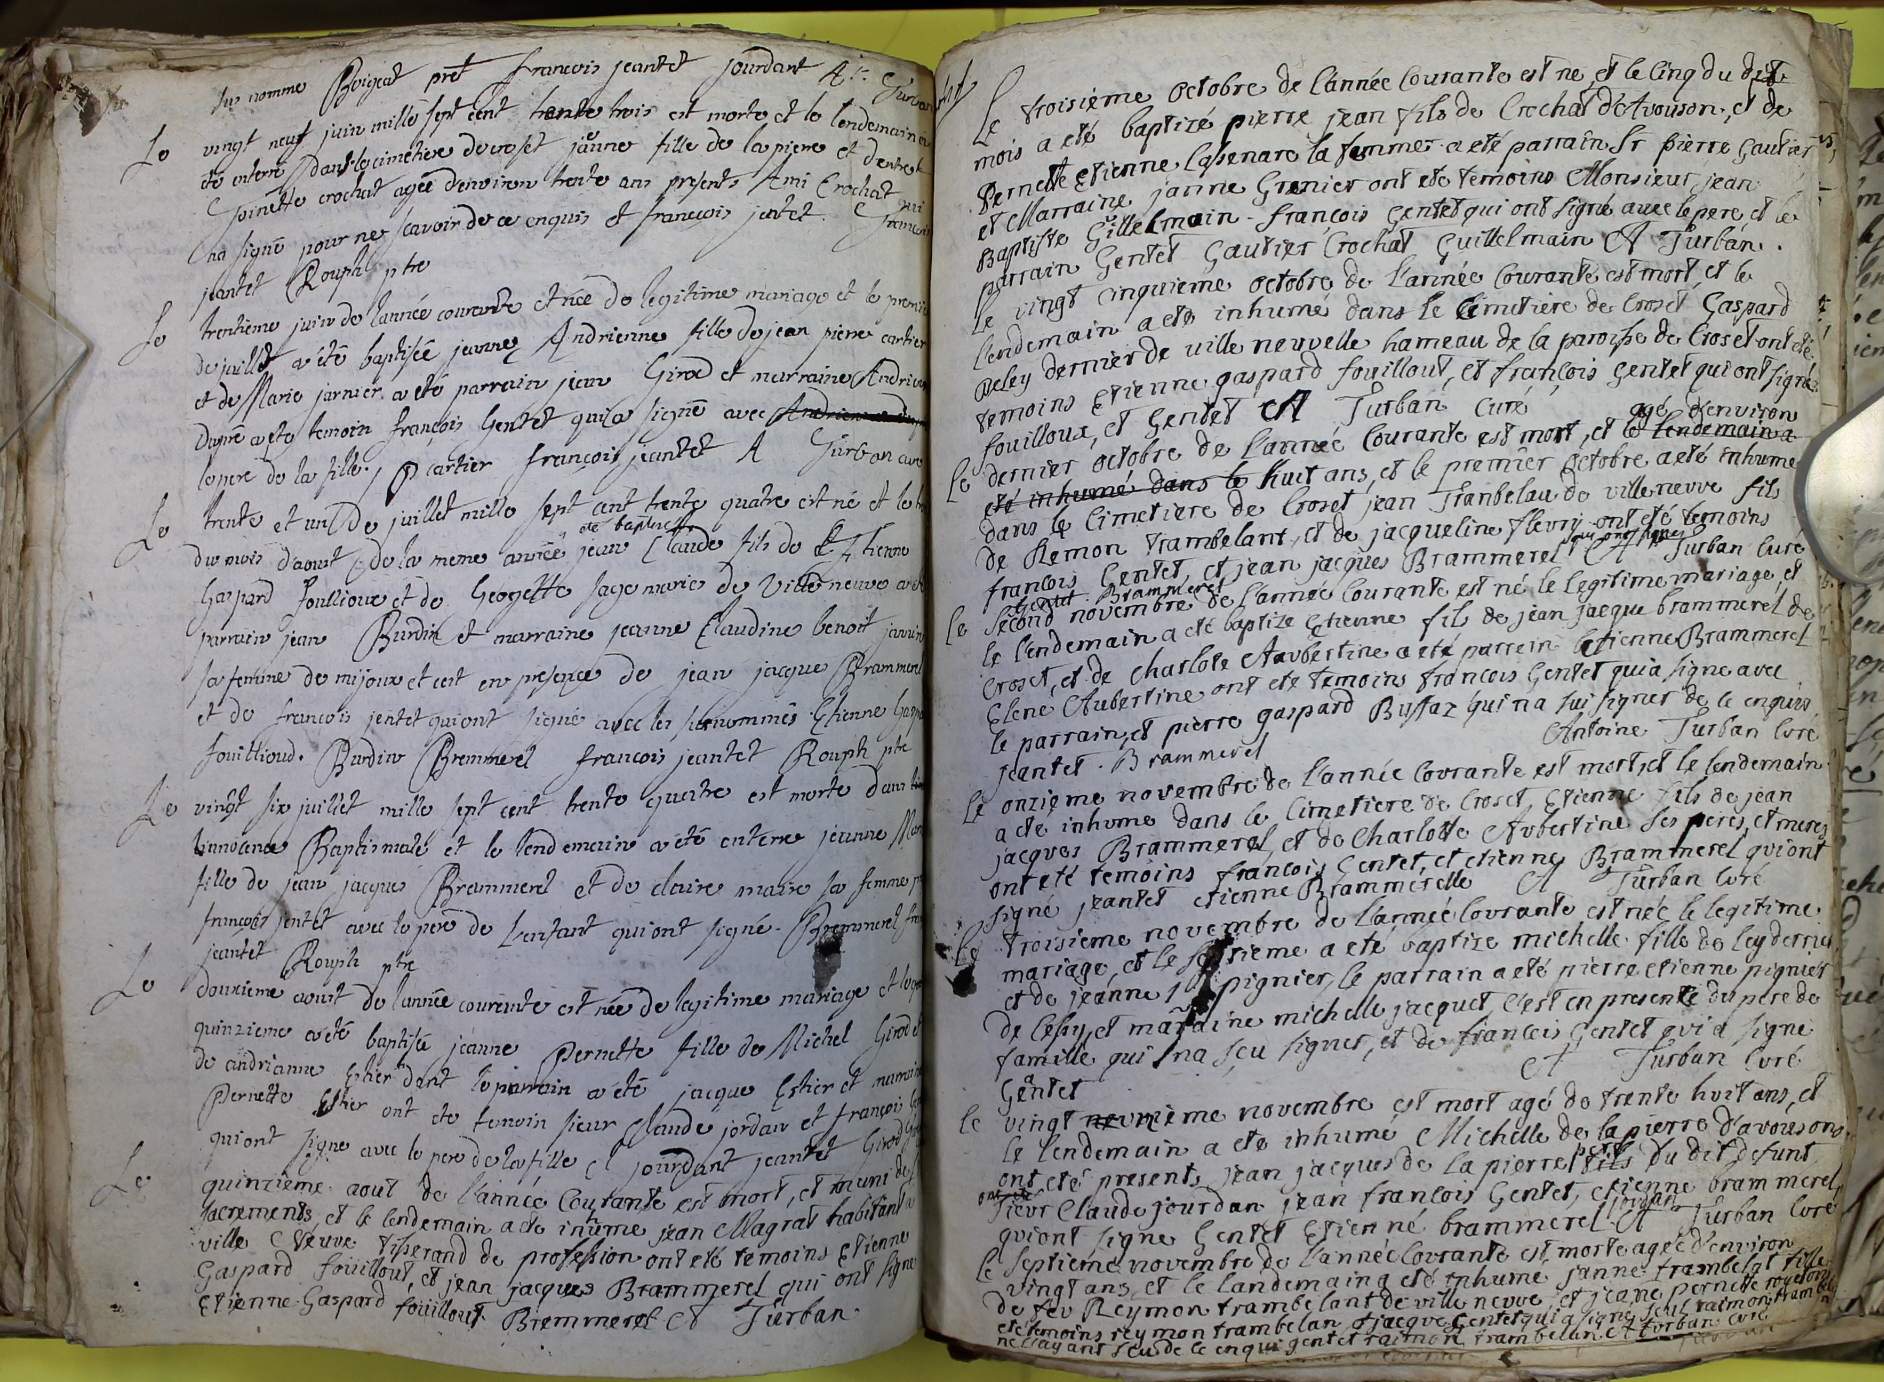 sus nomme Boigeat pret françois jeantet jourdant A. Turban
Le vingt neuf juin mille sept cent trente trois est morte et le lendemain a
été enterré dans le cimetiere de croset jeanne fille de la pierre et d'entre
Toinette crochat agée d'environ trente ans presents Ami Crochat qui
na signé pour ne scavoir de ce enquis et françois jentet. françois
jeantet Rouph ptre
Le trentieme juin de lannée courante et née de legitime mariage et le premier
de juillet a été baptisée jeanne Andrienne fille de jean pierre cartier
et de Marie jarnier a été parrain jean Girod et marraine Andrienne
dupré a été temoin françois Gentet qui a signé avec
le pere de la fille. P Cartier françois jeantet A Turban curé
Le trente et un de juillet mille sept cent trente quatre est né et le
du mois d'aout de la meme année a été baptisé jean Claude fils de Etienne
Gaspard fouillioux et de Georgette sage maries de Ville neuve a été
parrain jean Burdin et marraine jeanne Claudine benoit jannin
sa femme de mijoux et cest en presence de jean jacque Brammerel
et de françois jentet qui ont signé avec les surnommés. Etienne Gaspard
fouillioud. Burdin Bremmerel françois jeantet Rouph ptre
Le vingt six juillet mille sept cent trente quatre est morte dans
linnocence Baptismale et le lendemain a été enterre jeanne Mar
fille de jean jacques Brammerel et de claire maire sa femme
françois jentet avec le pere de l'enfant qui ont signé. Bremmerel
jeantet Rouph ptre
Le douzieme aout de lannée courente est née de legitime mariage et le
quinzieme a été baptisée jeanne Pernette fille de Michel Girod et
de andrianne Estier dont le parrain a été jacque Estier et marraine
Pernette Estier ont ete temoin sieur Claude jordan et françois
qui ont signe avec le pere de la fille C jourdant jeantet Girod
Le quinzieme aout de l'année Courante est mort, et muni des
sacrements, et le lendemain a ete inhumé jean Magrat habitant a
ville Neuve tisserand de profession ont eté temoins Etienne
Gaspard fouillout, et jean jacques Brammerel qui ont signe
Etienne Gaspard fouillout Bremmerel A Turban.
Le troisième octobre de l'année Courante est ne, et le Cinq du dit
mois a eté baptizé pierre jean fils de Crochat d'Avouson, et de
Pernette Etienne la femme a eté parrain Sr pierre Gautier
et Marraine janne Grenier ont eté temoins Monsieur jean
Baptiste Gillelmain. françois Gentet qui ont signé avec le pere, et le
parrain Gentet Gautier Crochat Guillelmain A Turban.
Le vingt cinquieme octobre de l'année Courante est mort, et le
lendemain a eté inhumé dans le Cimetiere de Croset Gaspard
Ley dernier de ville neuvelle hameau de la paroisse de Croset ont eté
temoins Etienne gaspard fouillout, et françois Gentet qui ont signé
fouilloux, et Gentet A Turban Curé
agé d'environ
Le dernier octobre de l'année Courante est mort, et le lendemain a
eté inhumé dans le huit ans, et le premier octobre a eté inhume
dans le Cimetiere de Croset jean Trambelau de villeneuve fils
de Remon Trambelant, et de jacqueline fleury ont eté temoins
françois Gentet, et jean jacques Brammerel qui ont signes A Turban Curé
Gentet. Brammerel
Le second novembre de l'année Courante est né le Legitime mariage, et
le lendemain a eté baptize Etienne fils de jean jacque brammerel de
Croset, et de Charlote Aubertine a eté parrein Etienne Brammerel
Elene Aubertine ont eté temoins françois Gentet qui a signe avec
le parrain, et pierre gaspard Buffaz qui n'a sui signer de ce enquis
jeantet. Brammerel Antoine Turban Curé
Le onzième novembre de l'année Courante est mort, et le lendemain
a eté inhume dans le Cimetiere de Croset, Etienne fils de jean
jacques Brammerel, et de Charlotte Aubertine ses peres, et meres
ont eté temoins françois Gentet, et etienne Brammerel, qui ont
signé jeantet etienne Brammerelle A Turban Curé
Le troisieme novembre de l'année Courante est née le legitime
mariage, et le septieme a eté baptize michelle fille de ley dernier
et de jeanne pignier, le parrain a eté pierre etienne pignier
de Cessy, et marraine michelle jacquet C'est en presente du pere de
famille qui n'a sçu signer, et de francois Gentet qui a signe
Gentet A Turban Curé
le vingt neuvieme novembre est mort agé de trente huit ans, et
le lendemain a ete inhumé Michelle de la pierre d'avouson,
ont eté presents jean jacques de la pierre fils du dit defunt
sieur Claude jourdan jean francois Gentet, etienne brammerel,
qui ont signe Gentet Etienné brammerel. jordan A Turban Curé
Le Septieme novembre de l'année Courante est morte agée d'environ
vingt ans, et le landemain a eté inhumé janne trambelat fille
de feu Reymon trambelant de ville neuve, et jeane pernette
eté temoins reymon trambelan, et jacque Gentet qui a signe seul raimon trambelan
ne l'ayant scu de ce enquis gentet raimon trambelan A turban Curé